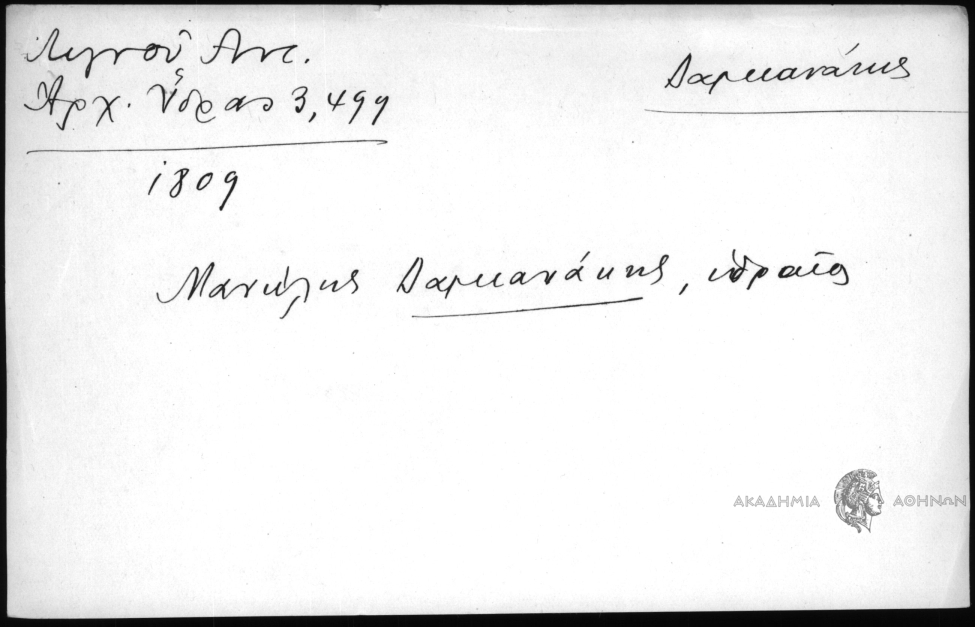 Λιγνοῦ Αντ.
Αρχ. Ὕδρας 3, 499
Δαμιανάκης
1809
Μανώλης Δαμιανάκης, υδραῖος
ΑΚΑΔΗΜΙΑ ΑΘΗΝΩΝ